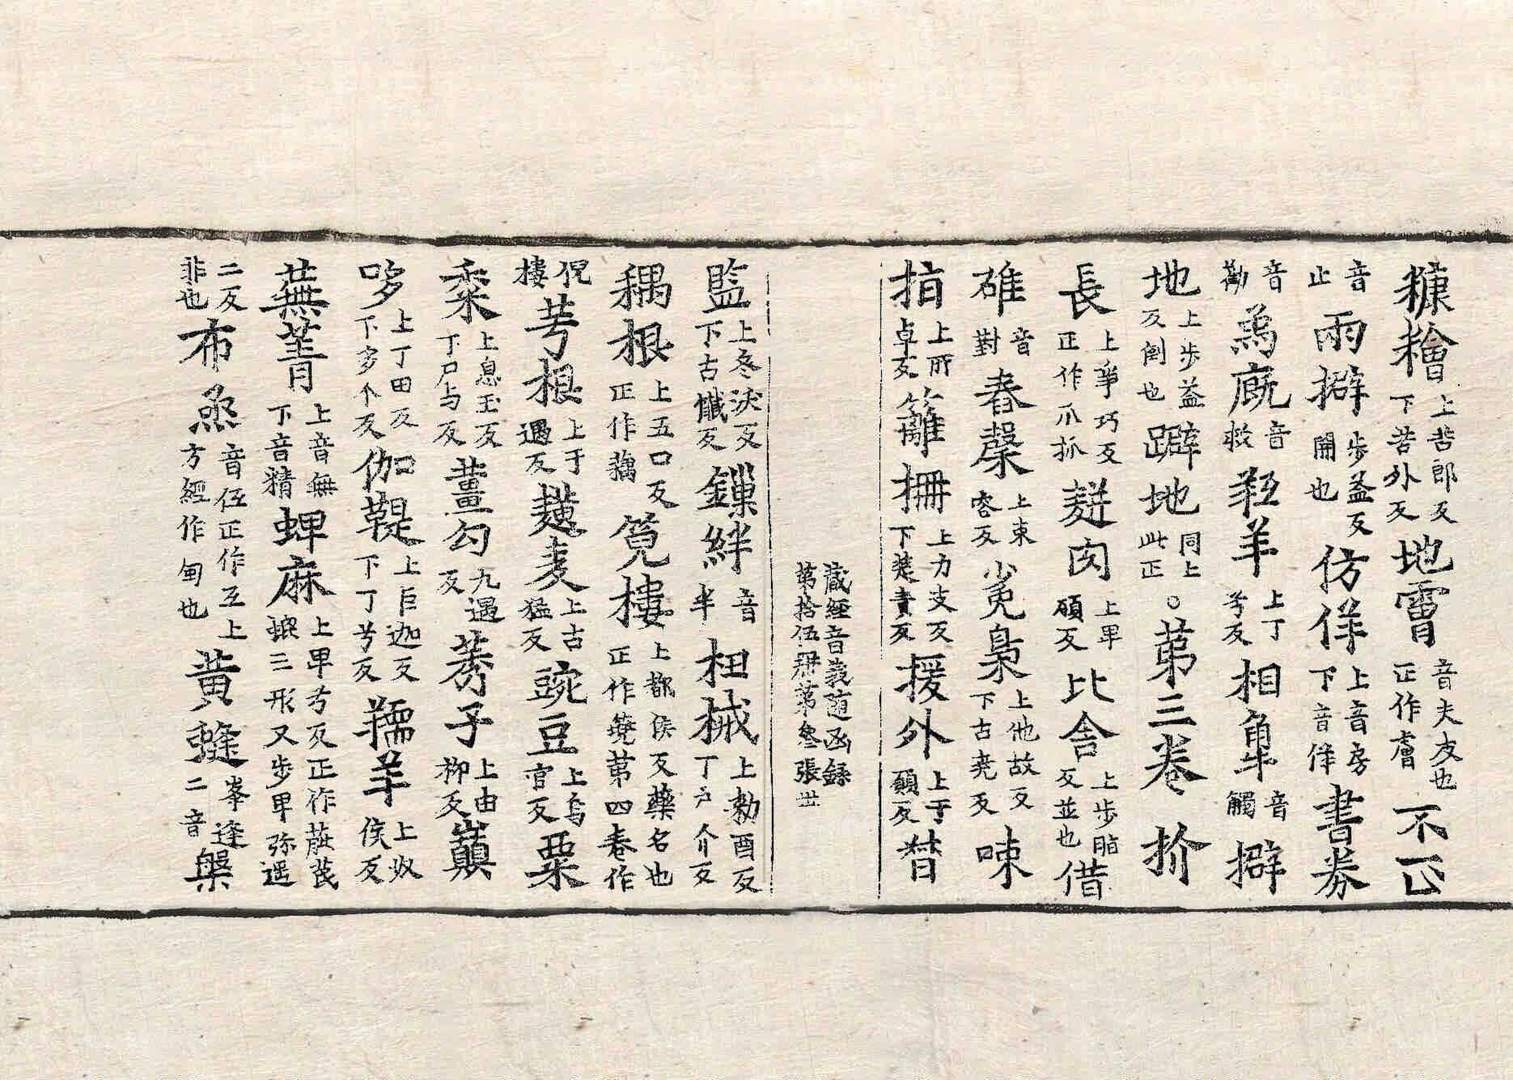 糠糩上苦郎反下苦外反地霄音夫友也正作膚不𠯁
音止雨擗步益反開也仿佯上音房下音佯書劵
音勸為廐音救羖羊上丁兮反相𧢻音觸擗
地上步益反倒也躃地同上此正。第三卷抓
長上爭巧反正作爪抓麨肉上毕碩反比舍上步脂反並也借
碓音對舂䅽上束容反兔梟上他故反下古堯反㖨
㨒上所卓反籬柵上力支反下楚責反援外上于願反䓨
藏經音義随函録第拾伍册第叄張 世
監上冬決反下古懺反鏁絆音半杻械上勅酉反丁戶介反
耦根上五口反正作藕筧樓上都侯反藥名也正作䥶第四卷作
𠈉樓芌根上于遇反䵃麦上古猛反豌豆上烏官反粟
桼上息玉反丁尸与反薑勾九遇反莠子上由柳反巔
哆上丁田反下多个反伽鞮上巨迦反下丁兮反羺羊上奴侯反
蕪菁上音無下音精蜱麻上毕兮反正作蓖莀螕三形又步毕弥遥
二反非也布㷃音伍正作互上方經作甸也黃𧍗峯逢二音槃